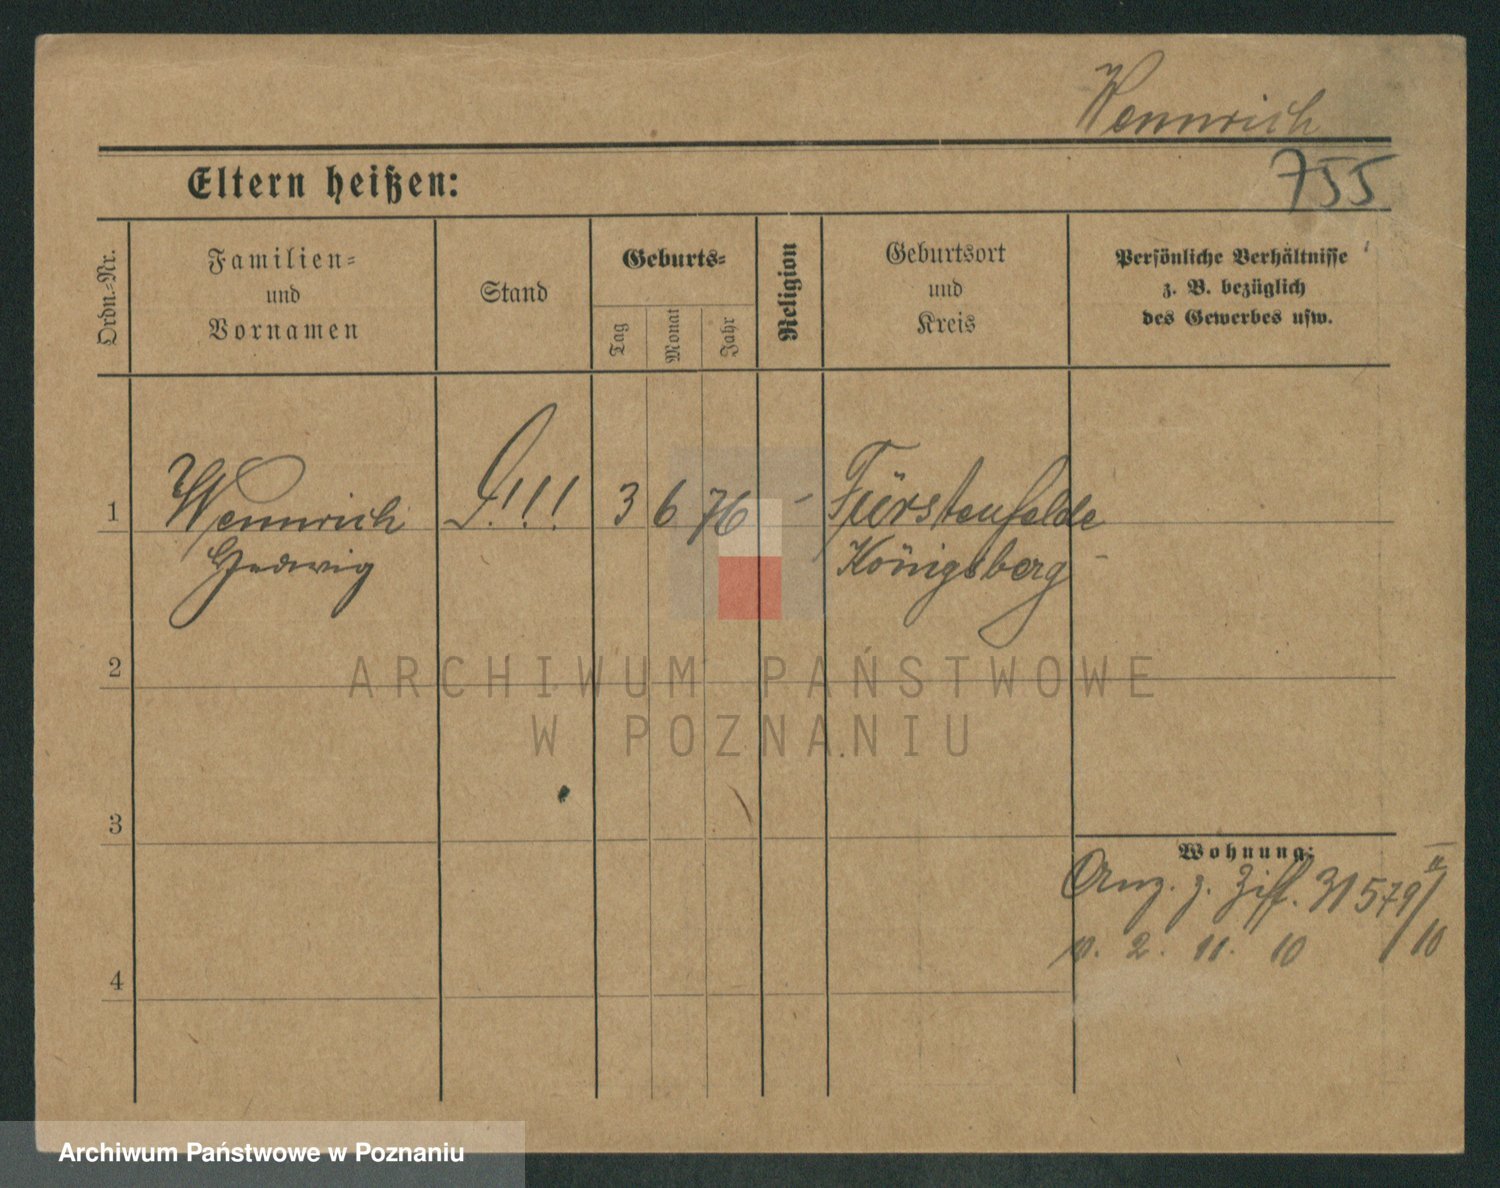 Wennrich
Eltern heißen:
755
Ordn.-Nr.
Familien-
und
Vornamen
Stand
Geburts-
Tag
Monat
Jahr
Religion
Geburtsort
und
Kreis
Persönliche Verhältnisse
z. B. bezüglich
des Gewerbes usw.
1
Wennrich
Hedwig
!!!
3 6 76 -
Fürstenfelde
Königsberg -
2
3
4
Wohnung:
Anz. z. Ziff. 31579/II
v. 2. 11. 10 /10
ARCHIWUM PAŃSTWOWE
W POZNANIU
Archiwum Państwowe w Poznaniu